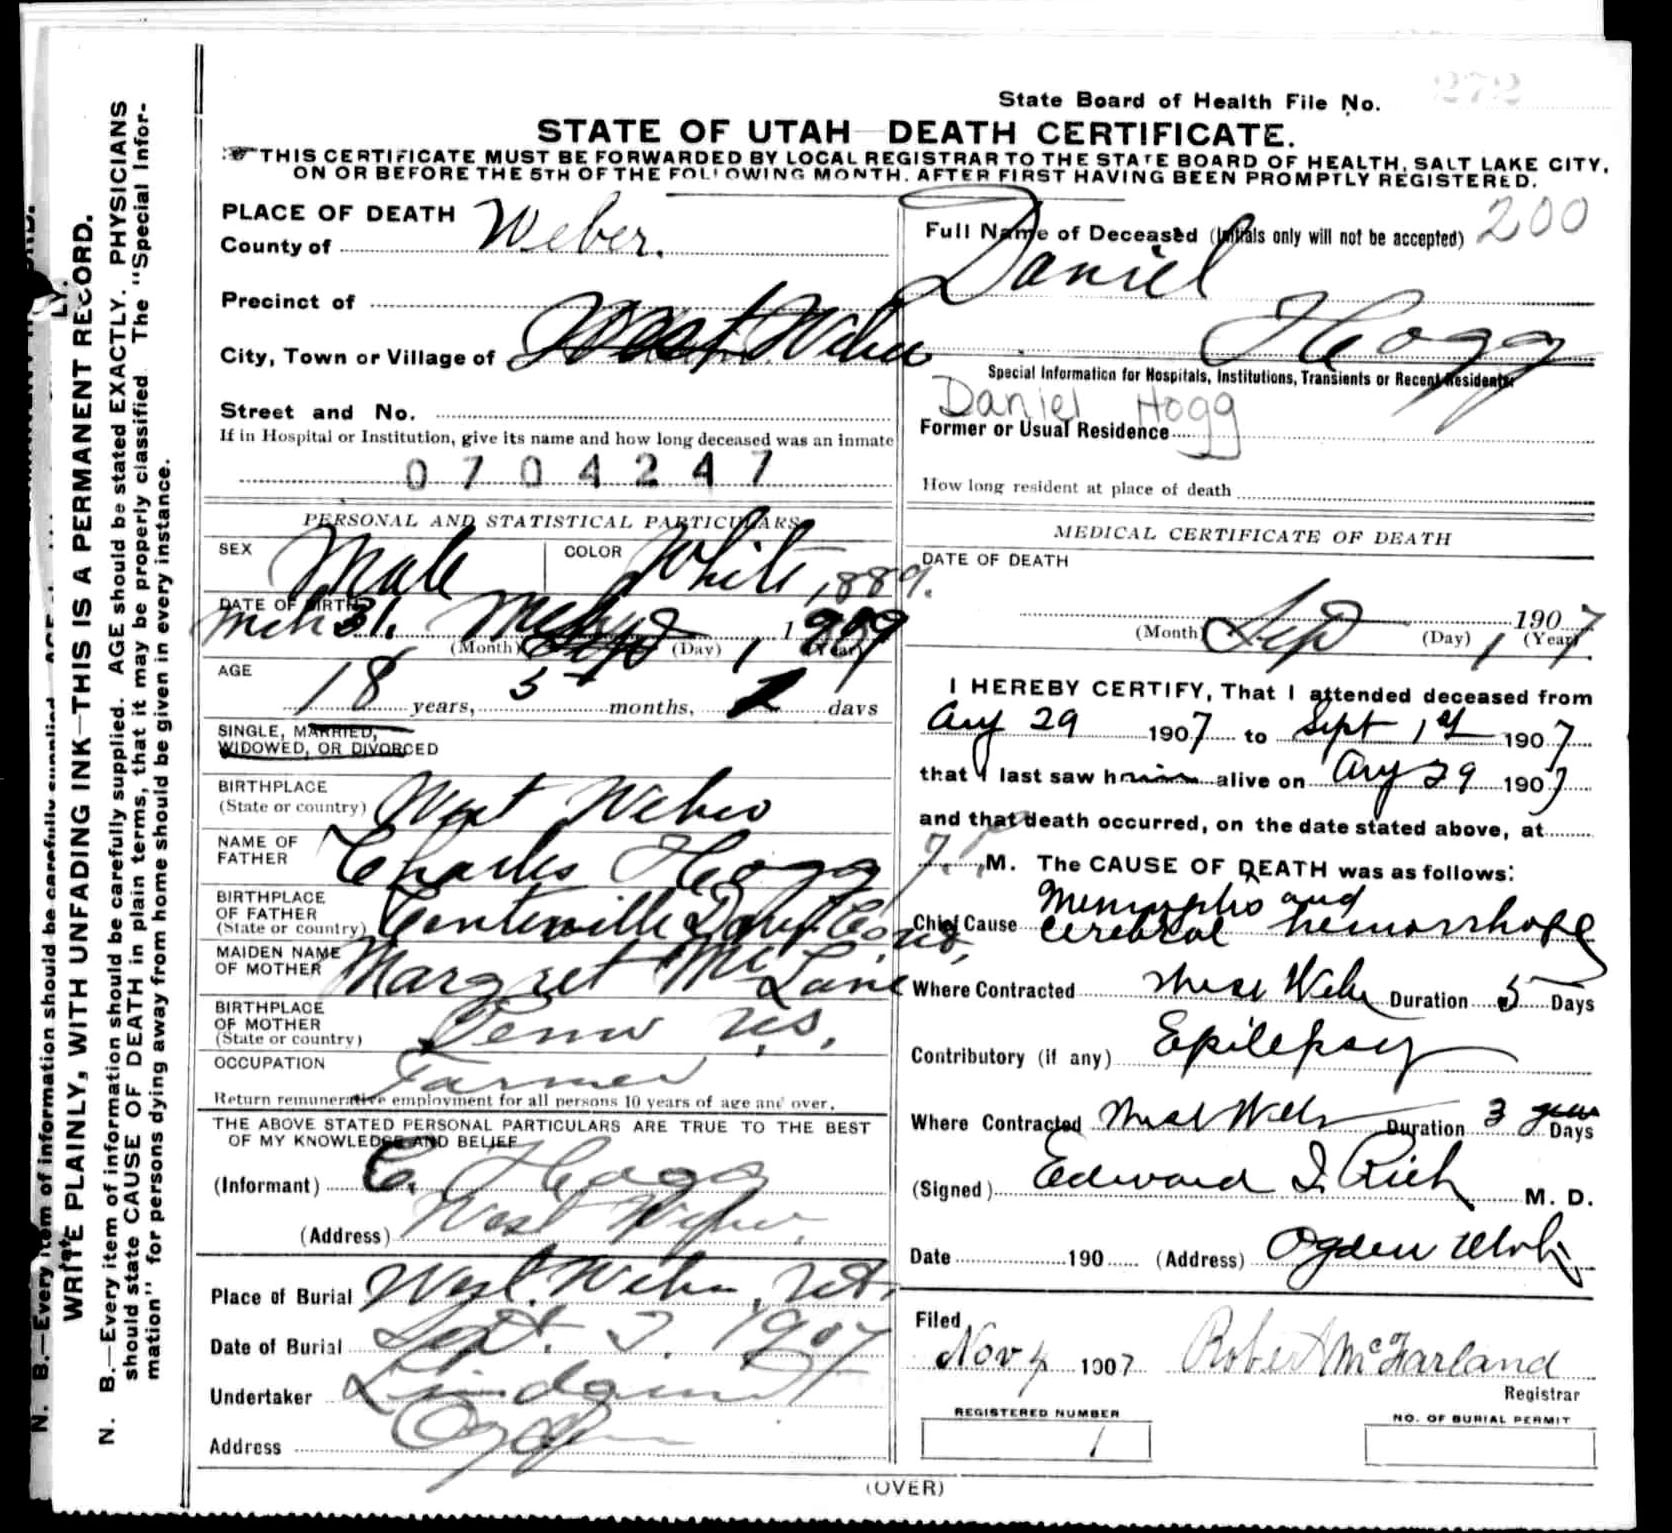 State Board of Health File No. 272
STATE OF UTAH—DEATH CERTIFICATE.
THIS CERTIFICATE MUST BE FORWARDED BY LOCAL REGISTRAR TO THE STATE BOARD OF HEALTH, SALT LAKE CITY,
ON OR BEFORE THE 5TH OF THE FOLLOWING MONTH, AFTER FIRST HAVING BEEN PROMPTLY REGISTERED.
PLACE OF DEATH
County of Weber.
Precinct of
City, Town or Village of West Weber
Street and No.
If in Hospital or Institution, give its name and how long deceased was an inmate
0704247
PERSONAL AND STATISTICAL PARTICULARS
SEX Male COLOR White
1889.
DATE OF BIRTH
Mch 31. 1
(Month) (Day) 1 (Year)
AGE
18 years, 5 months, 1 days
SINGLE, MARRIED,
WIDOWED, OR DIVORCED
BIRTHPLACE
(State or country) West Weber
NAME OF
FATHER Charles Hogg
BIRTHPLACE
OF FATHER
(State or country) Centerville Davis Co
MAIDEN NAME
OF MOTHER Margret Mc Lane
BIRTHPLACE
OF MOTHER
(State or country) U.S.
OCCUPATION
Farmer
Return remunerative employment for all persons 10 years of age and over.
THE ABOVE STATED PERSONAL PARTICULARS ARE TRUE TO THE BEST
OF MY KNOWLEDGE AND BELIEF
(Informant) C. Hogg
(Address) West Weber.
Place of Burial West Weber, Ut.
Date of Burial Sept. 3. 1907
Undertaker Lindquist
Address Ogden
Full Name of Deceased (Initials only will not be accepted) 200
Daniel
Hogg
Special Information for Hospitals, Institutions, Transients or Recent Residents:
Daniel Hogg
Former or Usual Residence
How long resident at place of death
MEDICAL CERTIFICATE OF DEATH
DATE OF DEATH
1907
(Month) Sep (Day) 1 (Year) 7.
I HEREBY CERTIFY, That I attended deceased from
Aug 29 1907 to Sept 1st 1907
that I last saw him alive on Aug 29 1907
and that death occurred, on the date stated above, at
7. P. M. The CAUSE OF DEATH was as follows:
and
Chief Cause cerebral hemorrhage
Where Contracted West Weber Duration 5 Days
Contributory (if any) Epilepsy
Where Contracted West Weber Duration 3 years Days
(Signed) Edward I. Rich M. D.
Date 190 (Address) Ogden Utah
Filed
Nov 4 1907 Robert McFarland
Registrar
REGISTERED NUMBER
1
NO. OF BURIAL PERMIT
(OVER)
WRITE PLAINLY, WITH UNFADING INK—THIS IS A PERMANENT RECORD.
N. B.—Every item of information should be carefully supplied. AGE should be stated EXACTLY. PHYSICIANS
should state CAUSE OF DEATH in plain terms, that it may be properly classified. The "Special Infor-
mation" for persons dying away from home should be given in every instance.
N. B.—Every item of information should be carefully supplied.